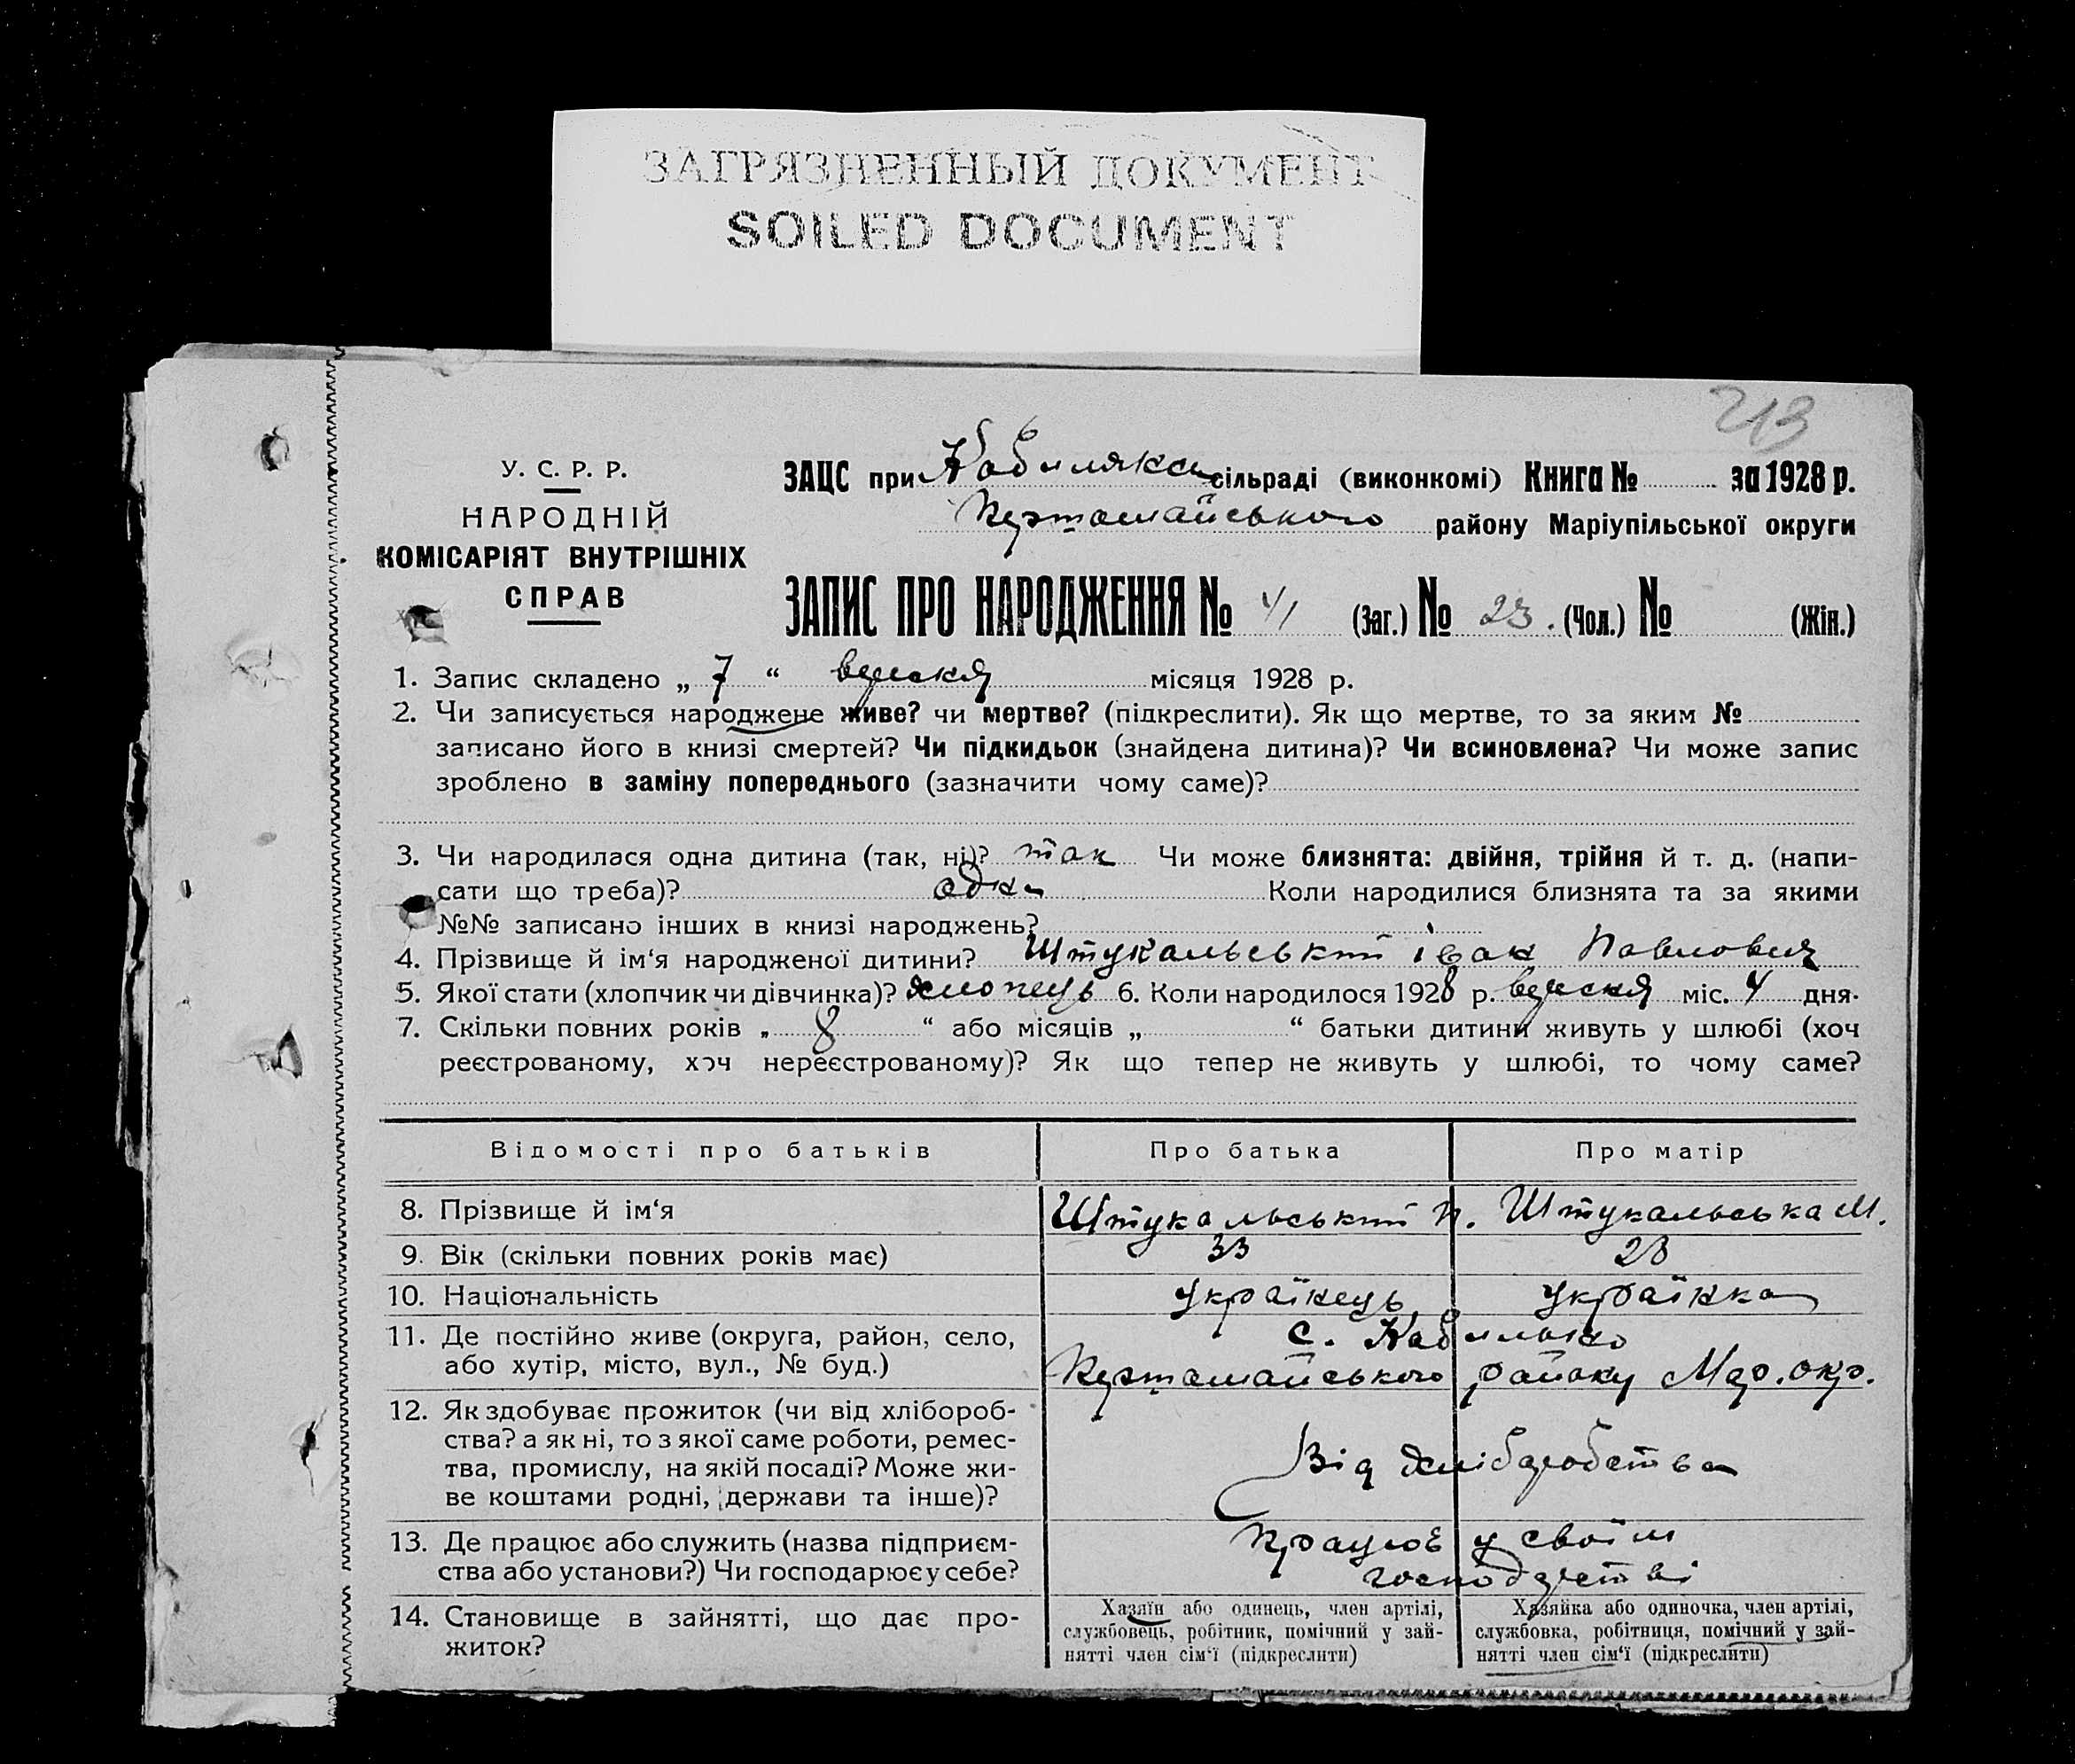 ЗАГРЯЗНЕННЫЙ ДОКУМЕНТ
SOILED DOCUMENT
213
У. С. Р. Р.
НАРОДНІЙ
КОМІСАРІЯТ ВНУТРІШНІХ
СПРАВ
ЗАЦС при сільраді (виконкомі) Книга № за 1928 р.
району Маріупільської округи
ЗАПИС ПРО НАРОДЖЕННЯ № 41 (Заг.) № 23. (Чол.) № (Жін.)
1. Запис складено „ 7 “ вересня місяця 1928 р.
2. Чи записується народжене живе? чи мертве? (підкреслити). Як що мертве, то за яким №
записано його в книзі смертей? Чи підкидьок (знайдена дитина)? Чи всиновлена? Чи може запис
зроблено в заміну попереднього (зазначити чому саме)?
3. Чи народилася одна дитина (так, ні)? так Чи може близнята: двійня, трійня й т. д. (напи-
сати що треба)? одна Коли народилися близнята та за якими
№№ записано інших в книзі народжень?
4. Прізвище й ім‘я народженої дитини? Штукальський Іван Павлович
5. Якої стати (хлопчик чи дівчинка)? хлопець 6. Коли народилося 1928 р. вересня міс. 4 дня.
7. Скільки повних років „ 8 “ або місяців „ “ батьки дитини живуть у шлюбі (хоч
реєстрованому, хоч нереєстрованому)? Як що тепер не живуть у шлюбі, то чому саме?
Відомості про батьків Про батька Про матір
8. Прізвище й ім‘я Штукальський П. Штукальська М.
9. Вік (скільки повних років має) 33 28
10. Національність українець українка
11. Де постійно живе (округа, район, село, с.
або хутір, місто, вул., № буд.) району Мар. окр.
12. Як здобуває прожиток (чи від хлібороб-
ства? а як ні, то з якої саме роботи, ремес-
тва, промислу, на якій посаді? Може жи- Від хліборобства
ве коштами родні, держави та інше)?
13. Де працює або служить (назва підприєм- Працює у своїм
ства або установи?) Чи господарює у себе? господарстві
14. Становище в зайнятті, що дає про-
житок?
Хазяїн або одинець, член артілі,
службовець, робітник, помічний у зай-
нятті член сім‘ї (підкреслити)
Хазяйка або одиночка, член артілі,
службовка, робітниця, помічний у зай-
нятті член сім‘ї (підкреслити)